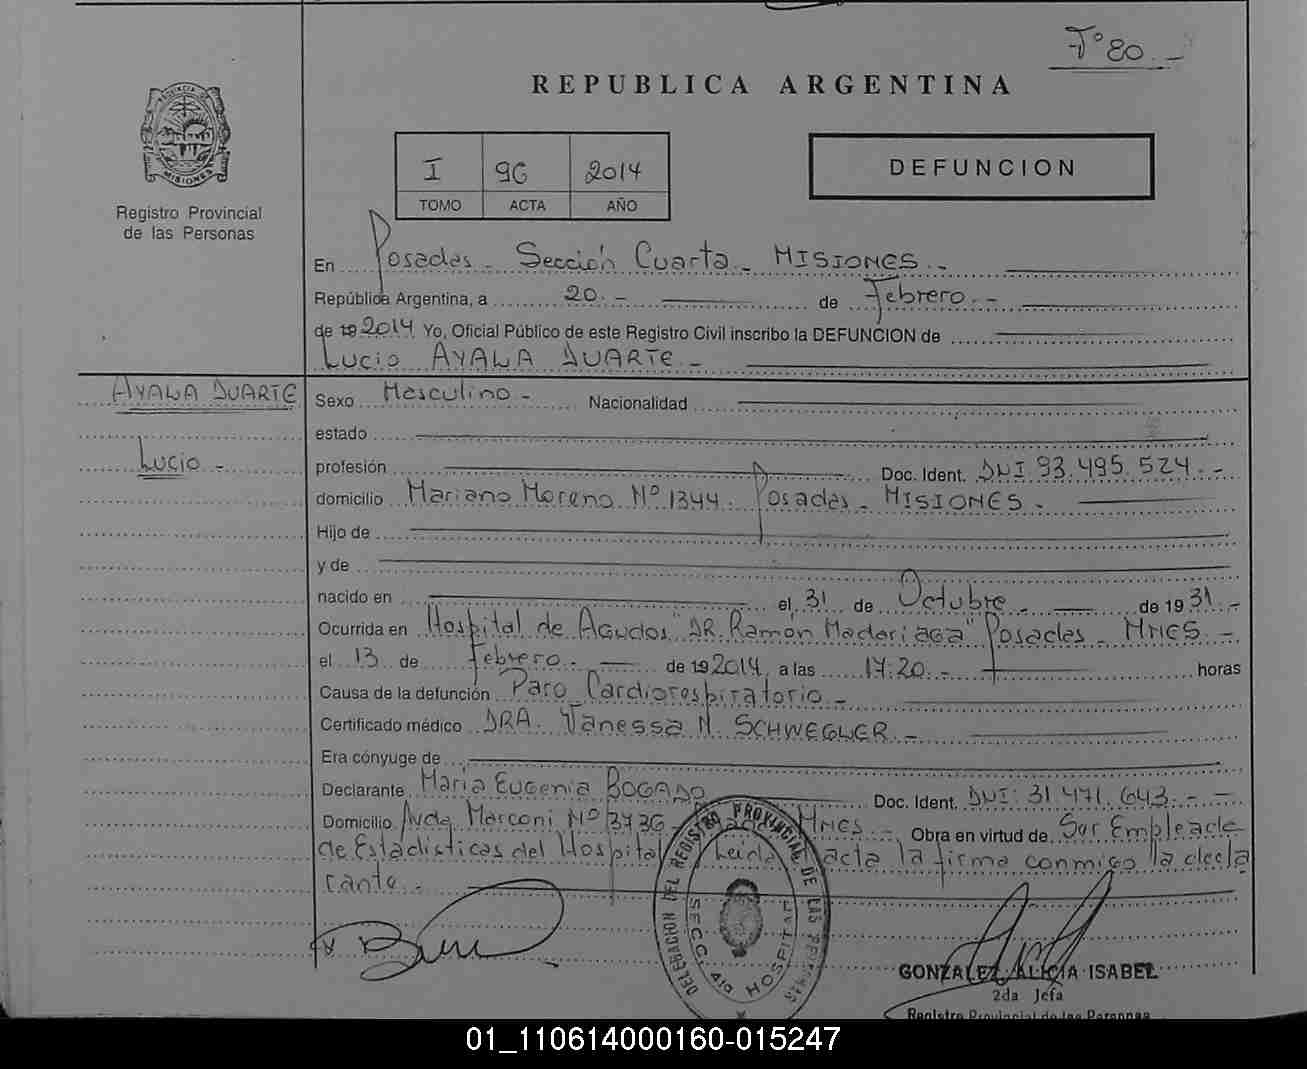 Fº 80.-
REPUBLICA ARGENTINA
PROVINCIA DE
MISIONES
Registro Provincial
de las Personas
I 96 2014
TOMO ACTA AÑO
DEFUNCION
En Posadas - Sección Cuarta - MISIONES.-
República Argentina, a 20.- de Febrero.-
de 19 2014 Yo, Oficial Público de este Registro Civil inscribo la DEFUNCION de
Lucio AYALA DUARTE.-
AYALA DUARTE
Lucio.-
Sexo Masculino.- Nacionalidad
estado
profesión Doc. Ident. DNI 93.495.524.-
domicilio Mariano Moreno Nº 1344. Posadas - MISIONES.-
Hijo de
y de
nacido en el 31 de Octubre.- de 19 31.-
Ocurrida en Hospital de Agudos "DR. Ramón Madariaga" Posadas - MNES.-
el 13 de Febrero.- de 19 2014, a las 17:20.- horas
Causa de la defunción Paro Cardiorespiratorio.-
Certificado médico DRA. Vanessa N. SCHWEGLER.-
Era cónyuge de
Declarante María Eugenia BOGADO Doc. Ident. DNI: 31.471.643.- -
Domicilio Avda Marconi Nº 3736 MNES.- Obra en virtud de Ser Empleada
de Estadísticas del Hospital Leida acta la firma conmigo la decla
rante.-
DELEGACION DEL REGISTRO PROVINCIAL DE LAS PERSONAS
SECC. 4ta HOSPITAL
GONZALEZ, ALICIA ISABEL
2da Jefa
Registro Provincial de las Personas
01_110614000160-015247